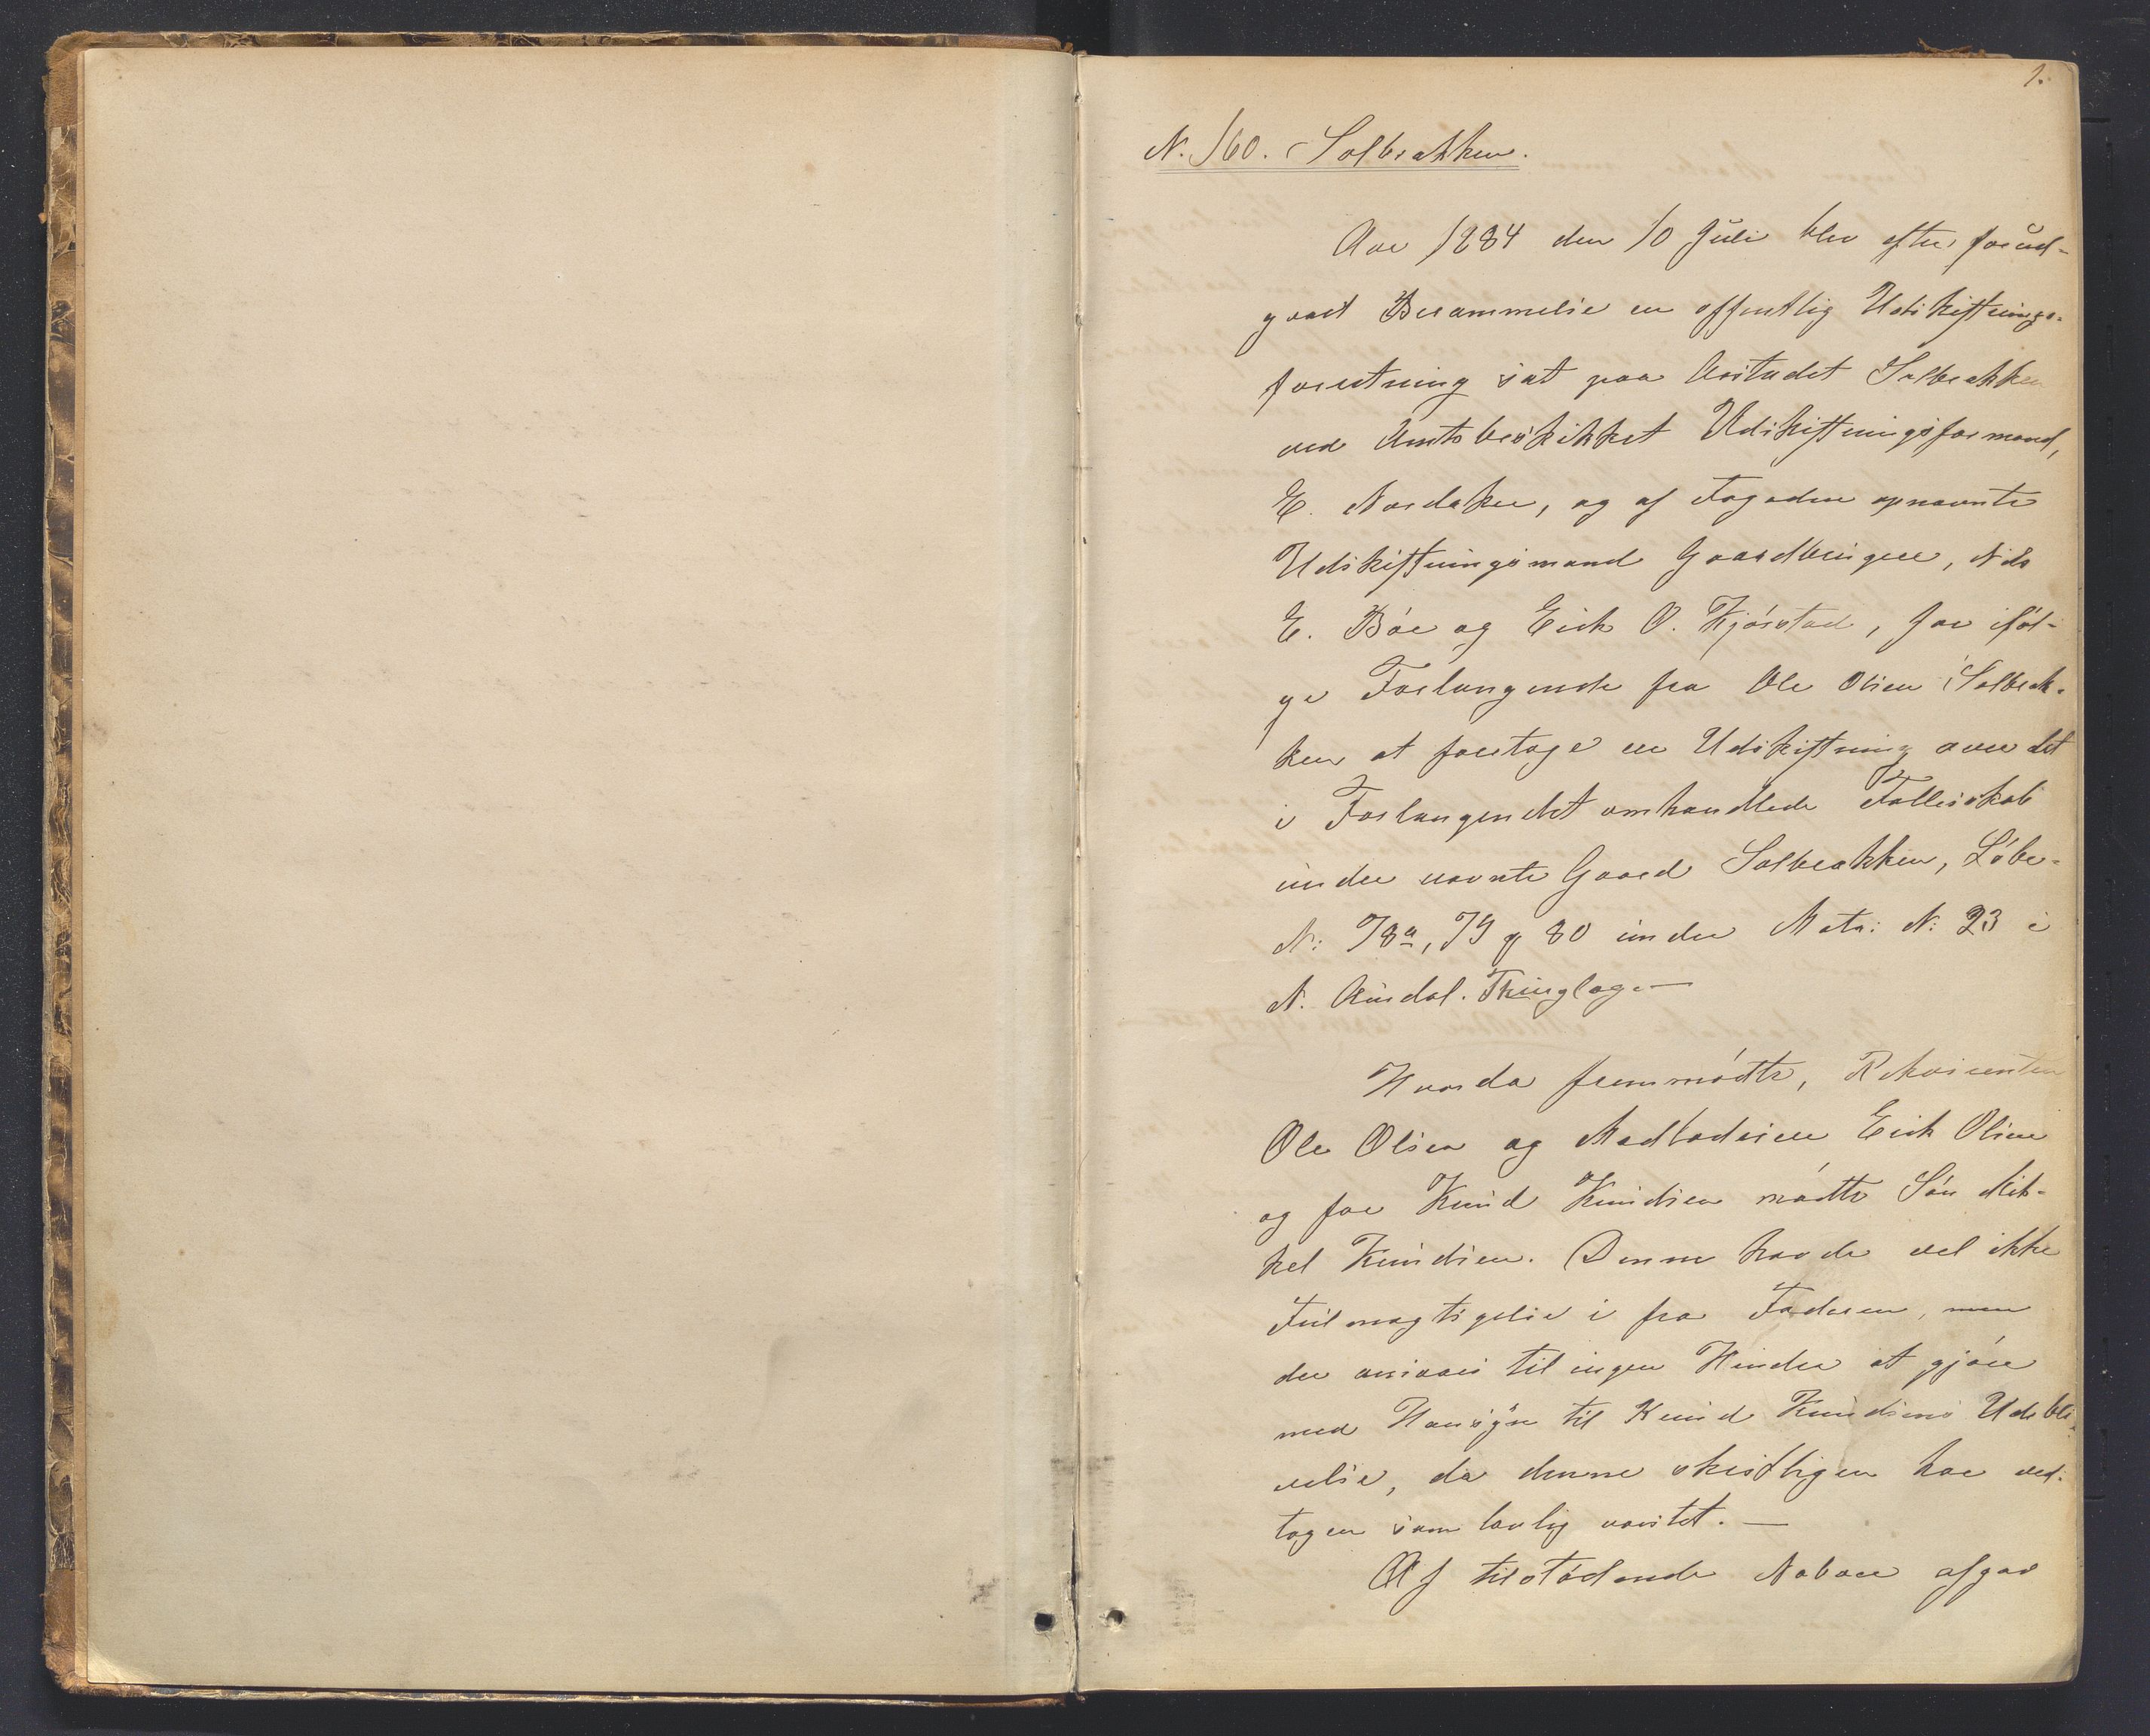 1.
N. 160. Solbrækken.
Aar 1884 den 10 Juli blev efter forud-
gaaet Berammelse en offentlig Udskiftnings-
forretning sat paa Aastædet Solbrækken
ved Amtsbeskikket Udskiftningsformand,
E. Nordaker, og af Fogeden opnævnte
Udskiftningsmænd Gaardbrugere, Nils
E. Bøe og Erik O. Kjørstad, for iføl-
ge Forlangende fra Ole Olsen Solbræk-
ken at foretage en Udskiftning over det
i Forlangendet omhandlede Fællesskab
under nævnte Gaard Solbrækken, Løbe-
N: 78a, 79 og 80 under Matr: N: 23 i
N. Aurdal. Thinglag.—
Hvorda fremmødte, Rekvirenten
Ole Olsen og Medlodseier Erik Olsen
og for Knud Knudsen mødte Søn Mik-
kel Knudsen. Denne havde vel ikke
Fuldmagtigelse i fra Faderen, men
der ansaaes til ingen Hinder at gjøre
med Hensyn til Knud Knudsens Udebli-
velse, da denne skriftligen har ved-
tagen som lovlig varslet.—
Af tilstødende Naboer afgav